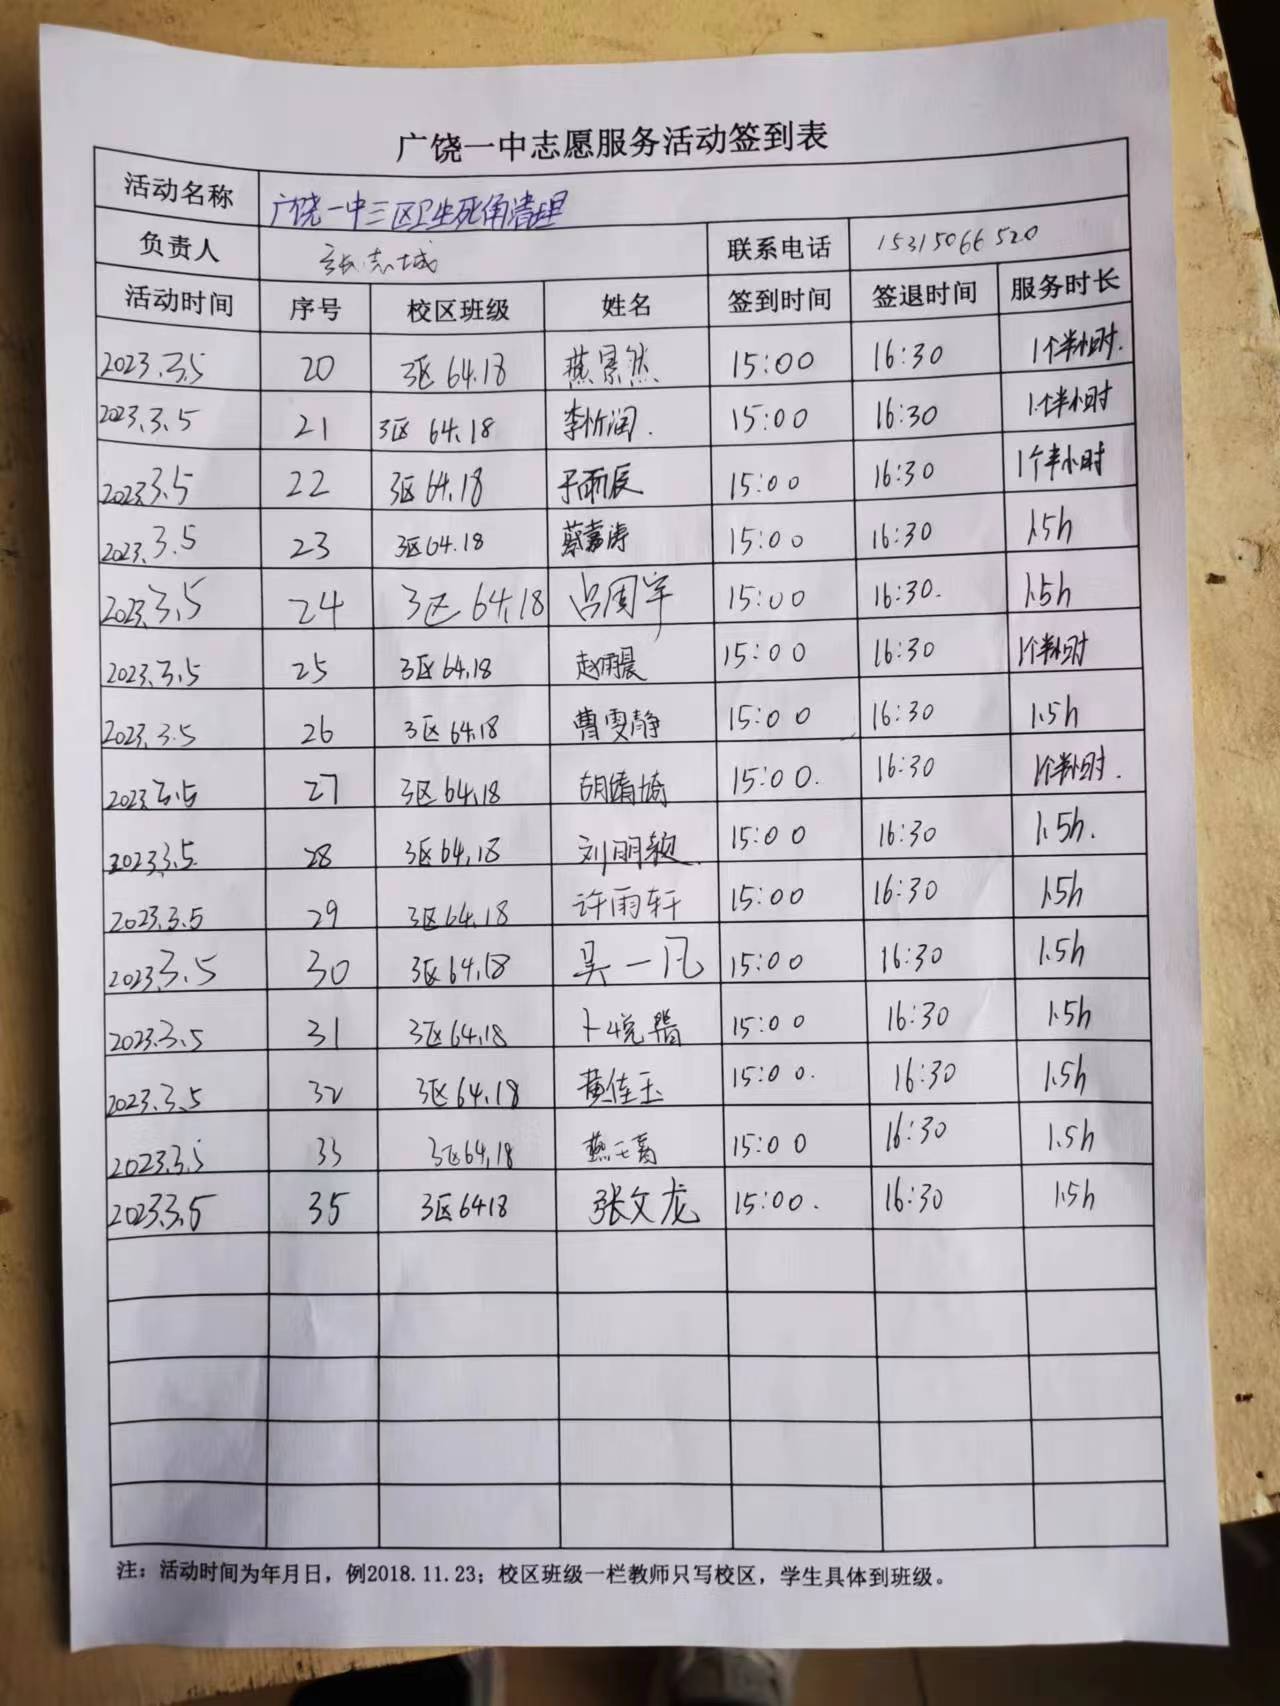 广饶一中志愿服务活动签到表
活动名称 广饶一中三区卫生死角清理
负责人 张志城 联系电话 15315066520
活动时间 序号 校区班级 姓名 签到时间 签退时间 服务时长
2023.3.5 20 3区64.18 燕景然 15:00 16:30 1个半小时.
2023.3.5 21 3区 64.18 李忻润. 15:00 16:30 1个半小时
2023.3.5 22 3区64.18 于雨辰 15:00 16:30 1个半小时
2023.3.5 23 3区64.18 蔡嘉涛 15:00 16:30 1.5h
2023.3.5 24 3区64.18 吕周宇 15:00 16:30. 1.5h
2023.3.5 25 3区64.18 赵雨晨 15:00 16:30 1个半小时
2023.3.5 26 3区64.18 曹雯静 15:00 16:30 1.5h
2023.3.5 27 3区64.18 15:00. 16:30 1个半小时.
2023.3.5 28 3区64.18 刘明颖. 15:00 16:30 1.5h.
2023.3.5 29 3区64.18 许雨轩 15:00 16:30 1.5h
2023.3.5 30 3区64.18 吴一凡 15:00 16:30 1.5h
2023.3.5 31 3区64.18 15:00 16:30 1.5h
2023.3.5 32 3区64.18 黄佳玉 15:00. 16:30 1.5h
2023.3.5 33 3区64.18 15:00 16:30 1.5h
2023.3.5 35 3区6418 张文龙 15:00. 16:30 1.5h
注：活动时间为年月日，例2018.11.23；校区班级一栏教师只写校区，学生具体到班级。